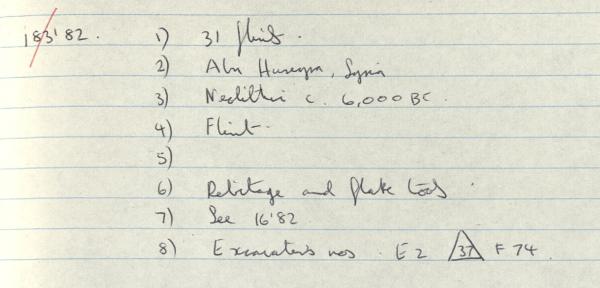 183'82. 1) 31 flints.
2) Abu Hureyra, Syria
3) Neolithic c. 6,000 BC.
4) Flint.
5)
6) Debitage and flake tools.
7) See 16'82
8) Excavators nos. E2 37 F 74.